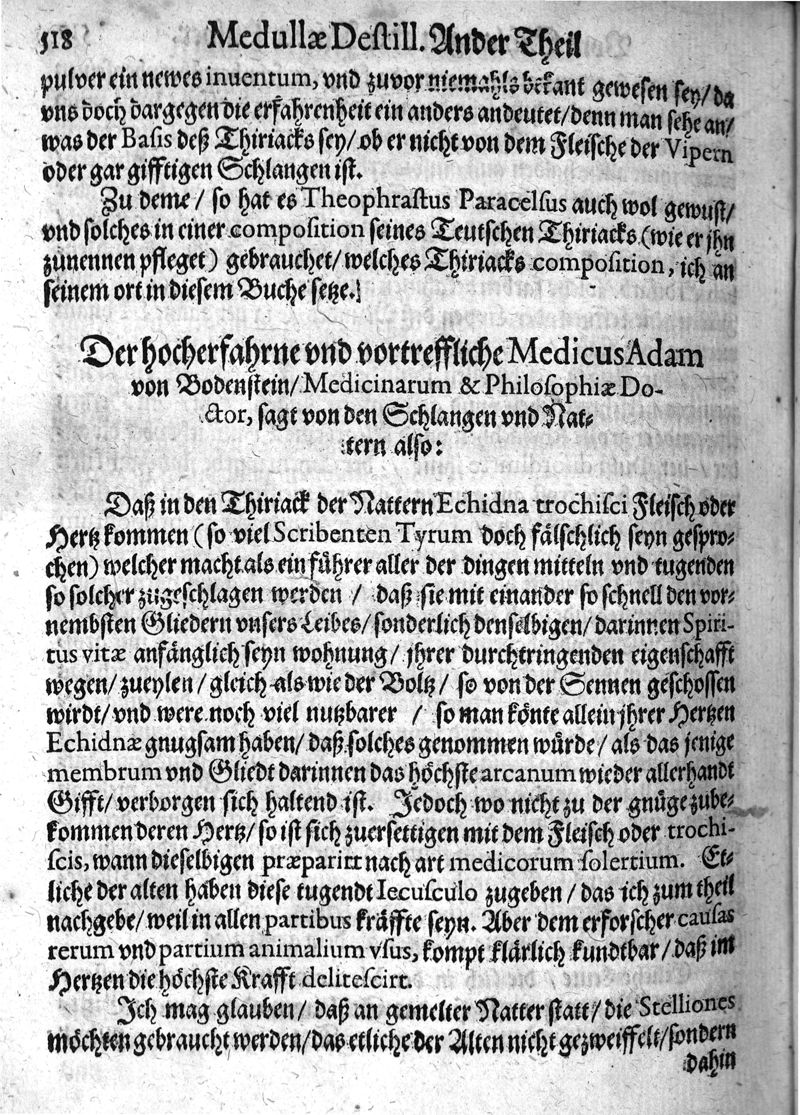 518 Medullæ Destill. Ander Theil
pulver ein newes inventum, vnd zuvor niemahls bekant gewesen sey/ da
vns doch dargegen die erfahrenheit ein anders andeutet/ denn man sehe an/
was der Basis deß Thiriacks sey/ ob er nicht von dem Fleische der Vipern
oder gar gifftigen Schlangen ist.
Zu deme/ so hat es Theophrastus Paracelsus auch wol gewust/
vnd solches in einer composition seines Teutschen Thiriacks (wie er jhn
zunennen pfleget) gebrauchet/ welches Thiriacks composition, ich an
seinem ort in diesem Buche setze.
Der hocherfahrne vnd vortreffliche Medicus Adam
von Bodenstein/ Medicinarum & Philosophiæ Do-
ctor, sagt von den Schlangen vnd Nat-
tern also:
Daß in den Thiriack der Nattern Echidna trochisci Fleisch oder
Hertz kommen (so viel Scribenten Tyrum doch fälschlich seyn gespro-
chen) welcher macht als ein führer aller der dingen mitteln vnd tugenden
so solcher zugeschlagen werden / daß sie mit einander so schnell den vor-
nembsten Gliedern vnsers Leibes/ sonderlich denselbigen/ darinnen Spiri-
tus vitæ anfänglich seyn wohnung/ jhrer durchtringenden eigenschafft
wegen/ zueylen/ gleich als wie der Boltz/ so von der Sennen geschossen
wirdt/ vnd were noch viel nutzbarer / so man könte allein jhrer Hertzen
Echidnæ gnugsam haben/ daß solches genommen würde/ als das jenige
membrum vnd Gliedt darinnen das höchste arcanum wieder allerhandt
Gifft/ verborgen sich haltend ist. Jedoch wo nicht zu der gnüge zube-
kommen deren Hertz/ so ist sich zuersettigen mit dem Fleisch oder trochi-
scis, wann dieselbigen præparirt nach art medicorum solertium. Et-
liche der alten haben diese tugendt Iecusculo zugeben/ das ich zum theil
nachgebe/ weil in allen partibus kräffte seyn. Aber dem erforscher causas
rerum vnd partium animalium vsus, kompt klärlich kundtbar/ daß im
Hertzen die höchste Krafft delitescirt.
Ich mag glauben/ daß an gemelter Natter statt/ die Stelliones
möchten gebraucht werden/ das etliche der Alten nicht gezweiffelt/ sondern
dahin